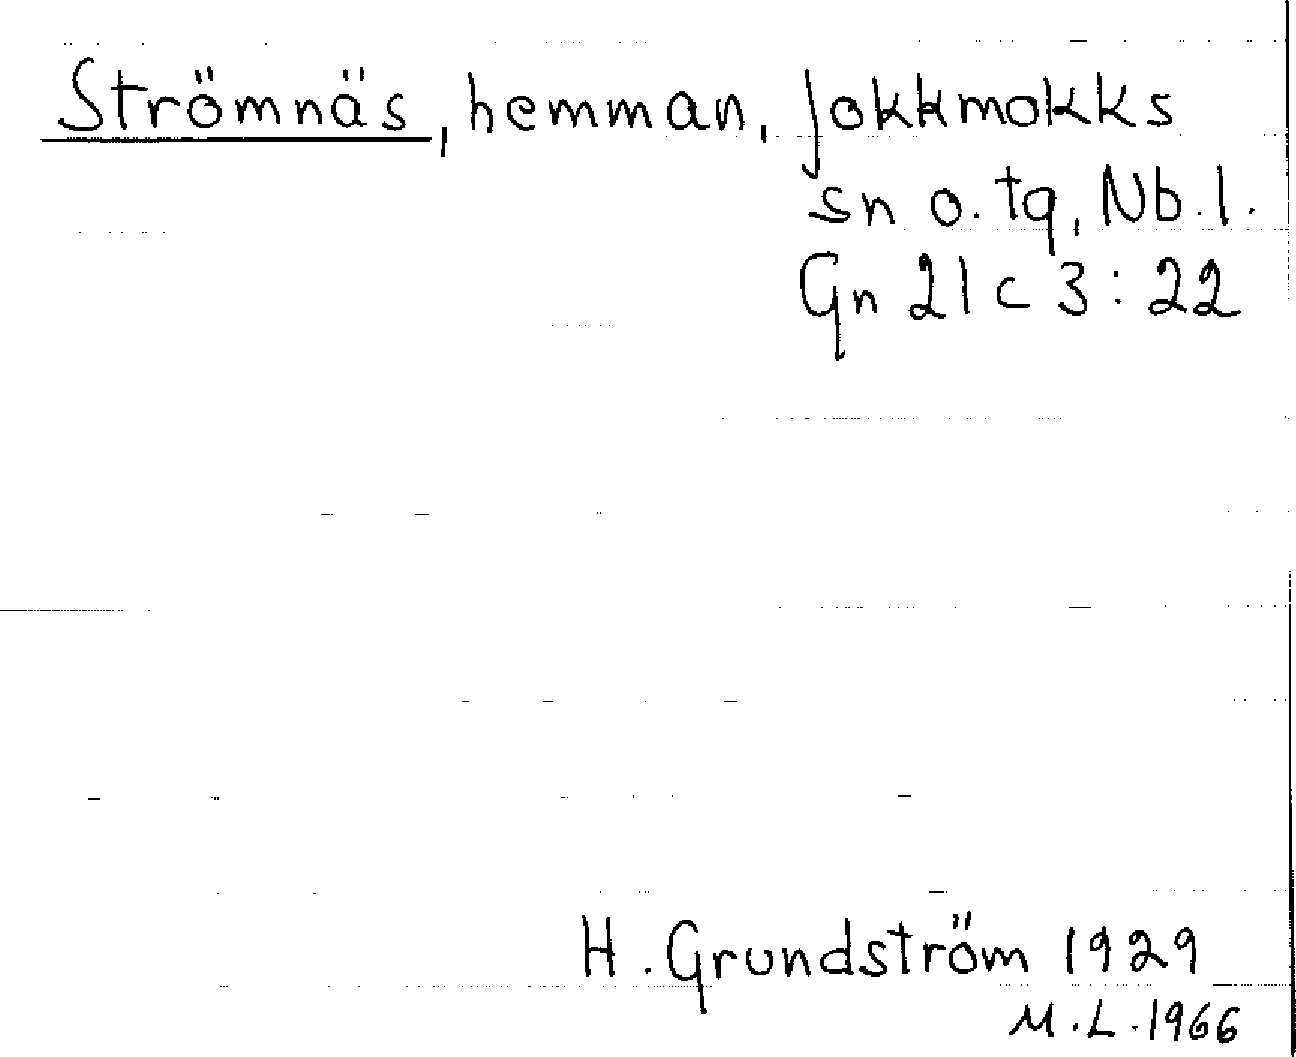 Strömnäs, hemman, Jokkmokks
sn o. tg, Nb.l.
Gn 21 c 3:22
H. Grundström 1929
M.L. 1966